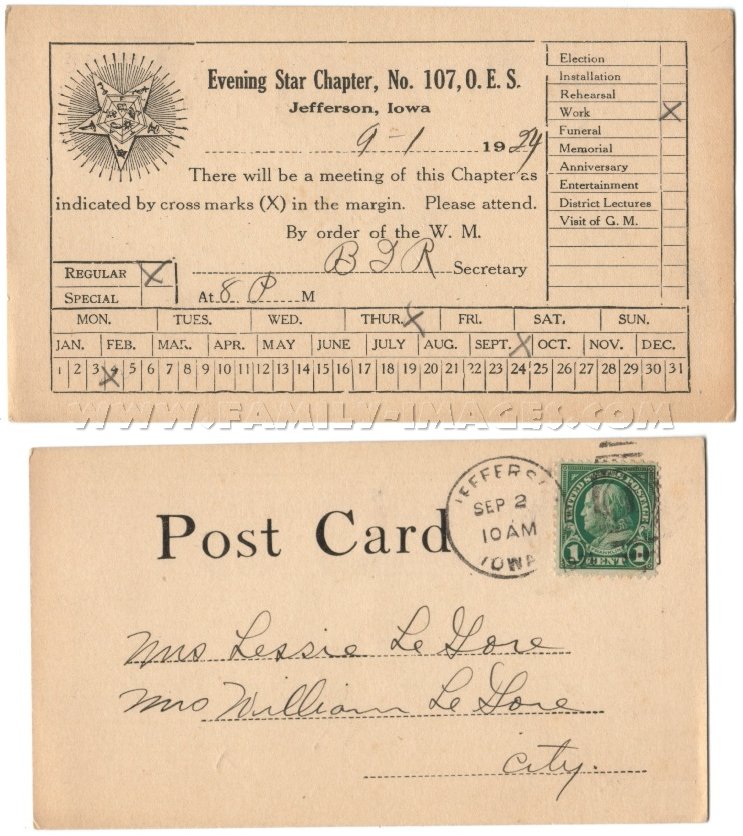 Evening Star Chapter, No. 107, O. E. S.
Jefferson, Iowa
9-1 1924
There will be a meeting of this Chapter as
indicated by cross marks (X) in the margin. Please attend.
By order of the W. M.
Secretary
At 8 P M
Election
Installation
Rehearsal
Work X
Funeral
Memorial
Anniversary
Entertainment
District Lectures
Visit of G. M.
REGULAR X
SPECIAL
MON. TUES. WED. THUR. X FRI. SAT. SUN.
JAN. FEB. MAR. APR. MAY JUNE JULY AUG. SEPT. X OCT. NOV. DEC.
1 2 3 4 5 6 7 8 9 10 11 12 13 14 15 16 17 18 19 20 21 22 23 24 25 26 27 28 29 30 31
WWW.FAMILY-IMAGES.COM
Post Card
SEP 2
10 AM
IOWA
UNITED STATES POSTAGE
FRANKLIN
1 CENT 1
Mrs Lessie Le Gore
Mrs William Le Gore
City.